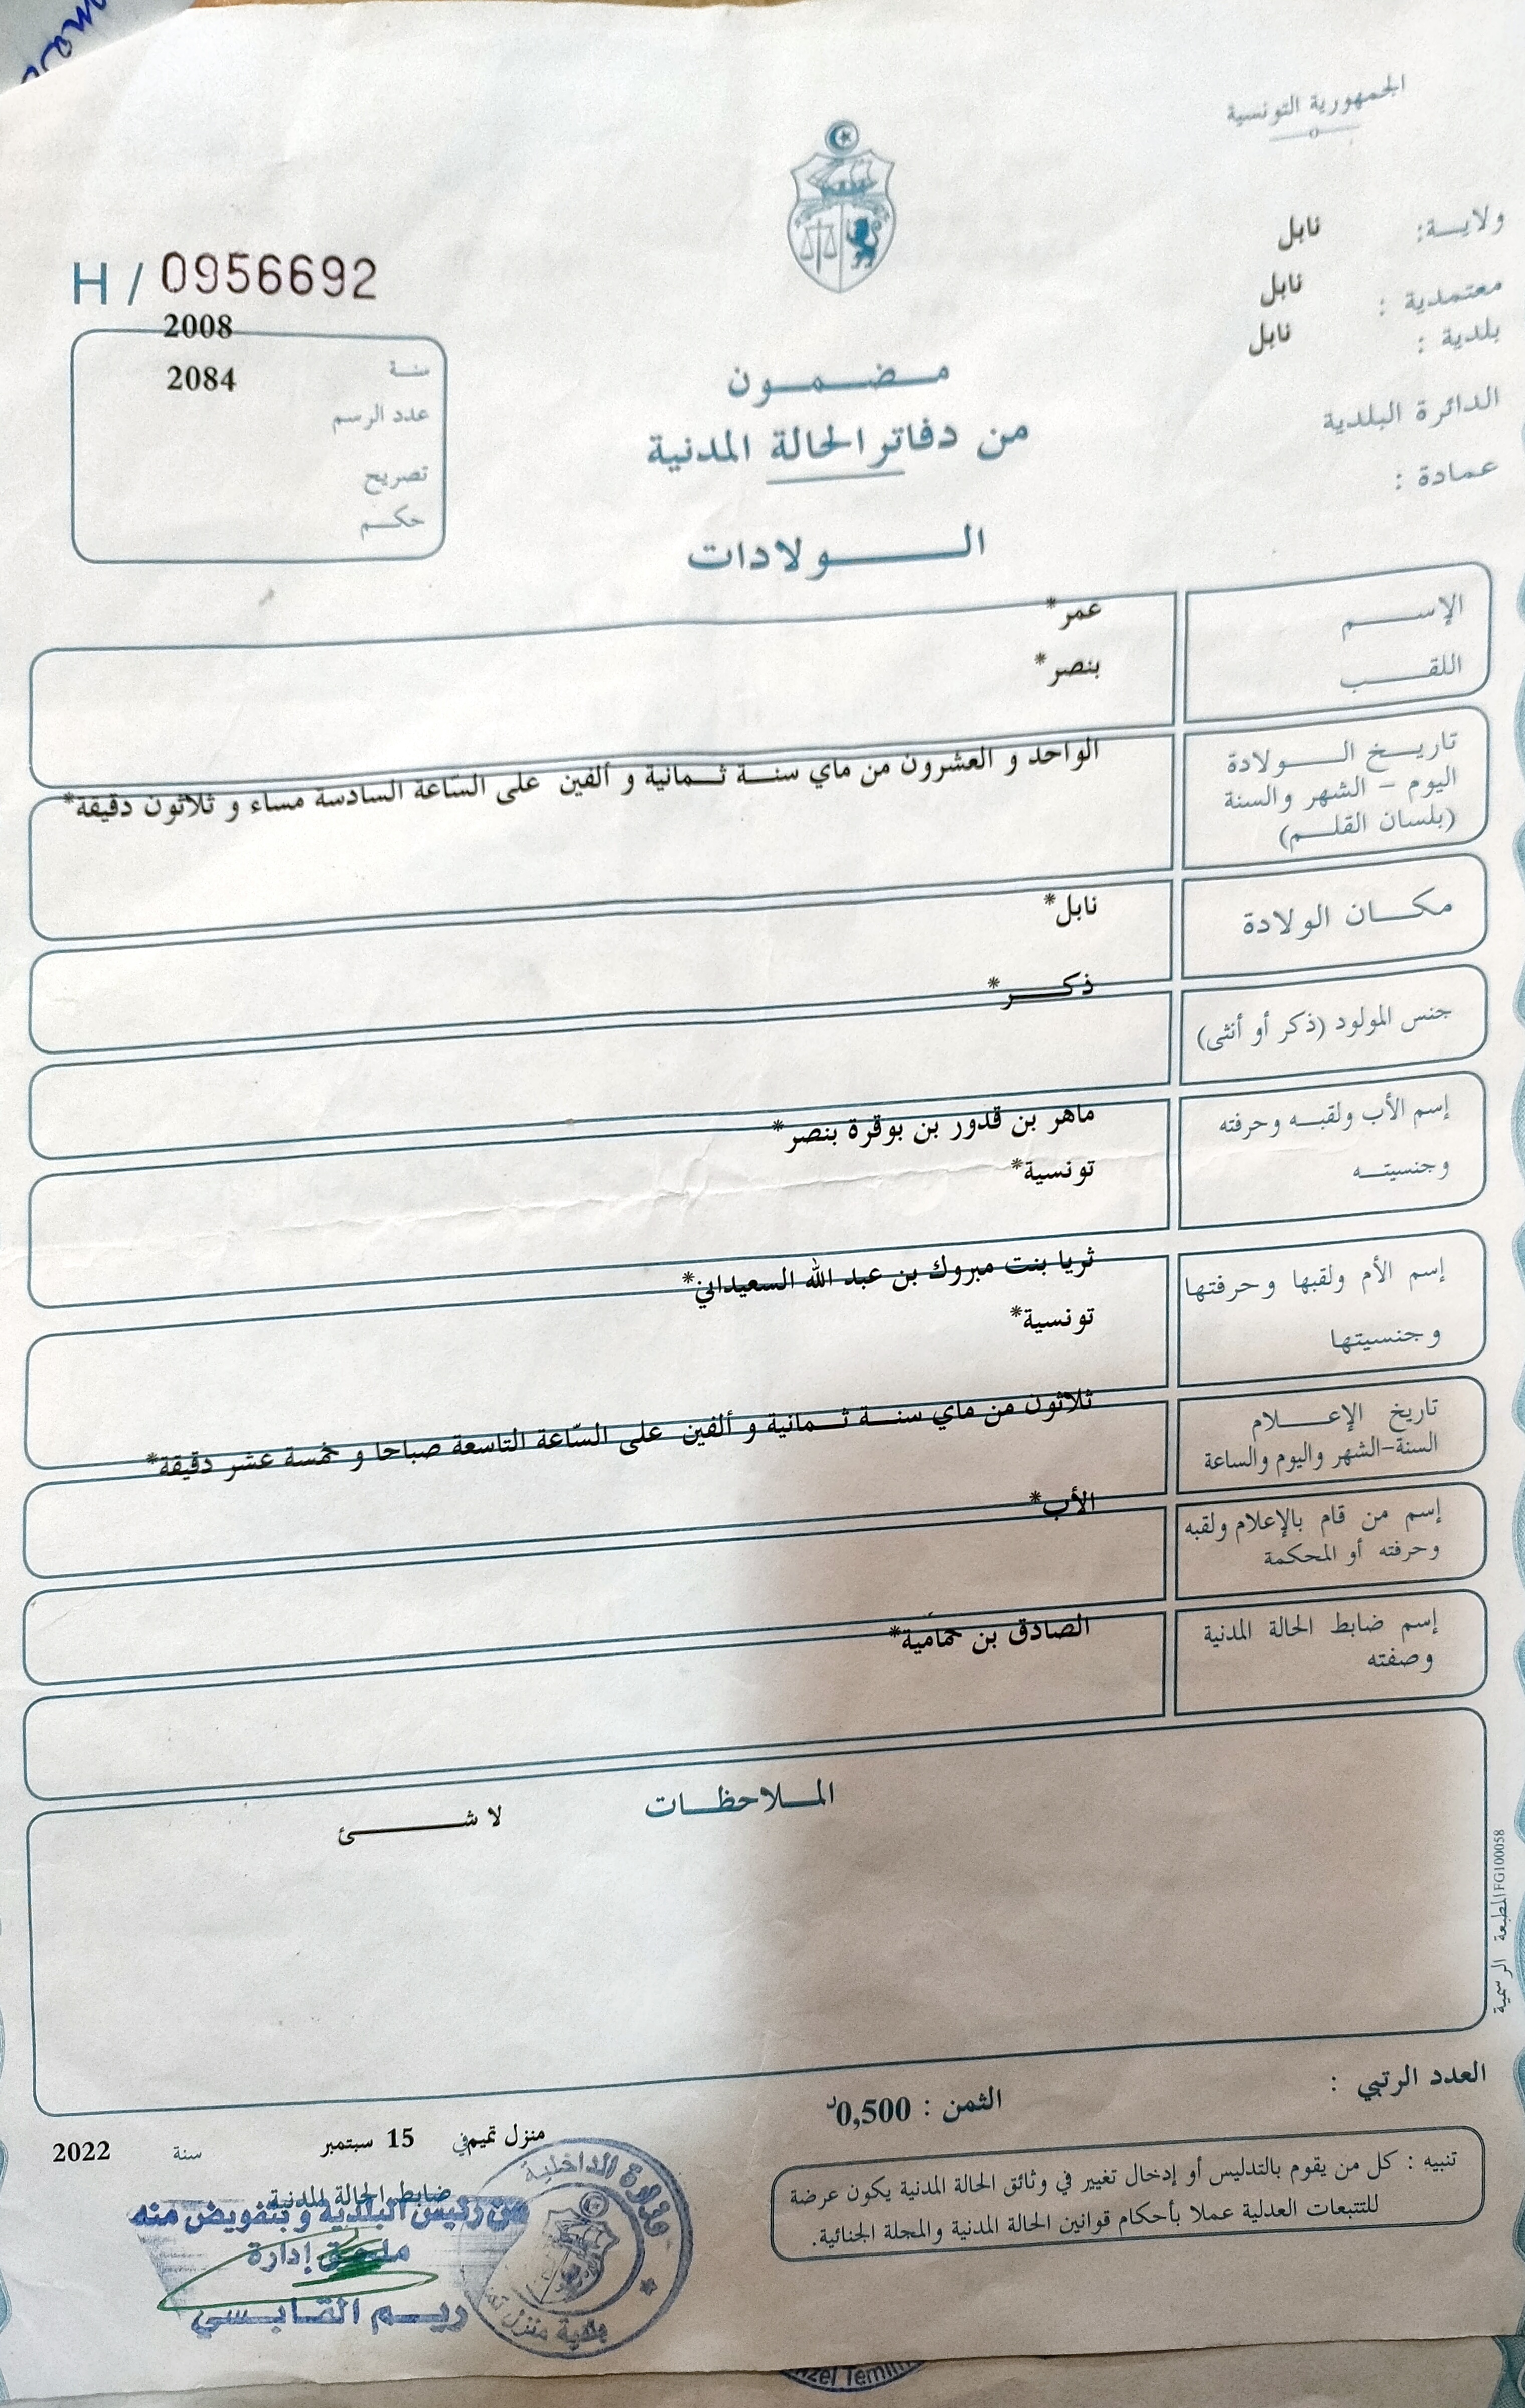 الجمهورية التونسية
ولايـــة: نابل
معتمدية : نابل
بلدية : نابل
الدائرة البلدية
عمادة :
H / 0956692
2008
سنـة
2084
عدد الرسم
تصريح
حكـــم
مـــضـــمـــون
من دفاتر الحالة المدنية
الــــــولادات
الإســـــم عمر*
اللقـــــب بنصر*
تاريـــخ الـــــولادة
اليوم - الشهر والسنة
(بلسان القلـــم)
الواحد و العشرون من ماي سنـــة ثـــمانية و ألفين على السّاعة السادسة مساء و ثلاثون دقيقة*
مكـــان الولادة نابل*
جنس المولود (ذكر أو أنثى) ذكـــــر*
إسم الأب ولقبـــه وحرفته ماهر بن قدور بن بوقرة بنصر*
وجنسيتـــه تونسية*
إسم الأم ولقبها وحرفتها ثريا بنت مبروك بن عبد الله السعيداني*
وجنسيتها تونسية*
تاريخ الإعـــــلام
السنة-الشهر واليوم والساعة
ثلاثون من ماي سنـــة ثـــمانية و ألفين على السّاعة التاسعة صباحا و خمسة عشر دقيقة*
إسم من قام بالإعلام ولقبه
وحرفته أو المحكمة
الأب*
إسم ضابط الحالة المدنية
وصفته
الصادق بن حمامية*
المـــلاحظـــات
لا شـــــــئ
المطبعة الرسمية FG100058
العدد الرتبي :
الثمن : 0,500د
تنبيه : كل من يقوم بالتدليس أو إدخال تغيير في وثائق الحالة المدنية يكون عرضة
للتتبعات العدلية عملا بأحكام قوانين الحالة المدنية والمجلة الجنائية.
منزل تميم في 15 سبتمبر سنة 2022
ضابط الحالة المدنية
عن رئيس البلدية و بتفويض منه
ملحق إدارة
ريـــم القـــابـــسي
وزارة الداخلية
بلدية منزل